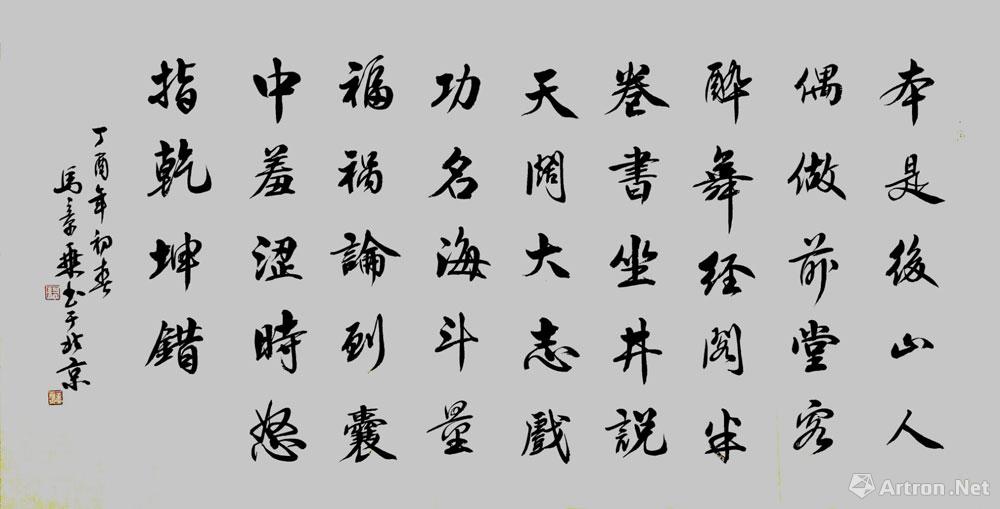 本是後山人
偶做前堂客
醉舞经阁半
卷書坐井説
天阔大志戲
功名海斗量
福禍論到囊
中羞涩時怒
指乾坤錯
丁酉年初春
馬书于北京
Artron.Net